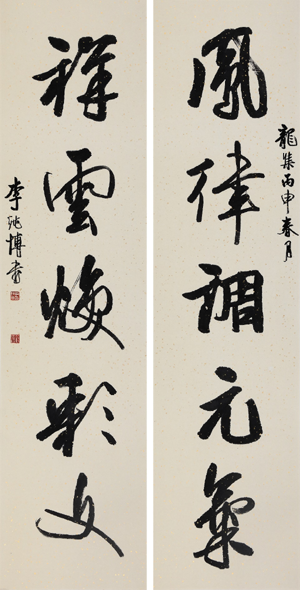 龍集丙申春月
鳳律調元氣
祥雲煥彩文
李博書